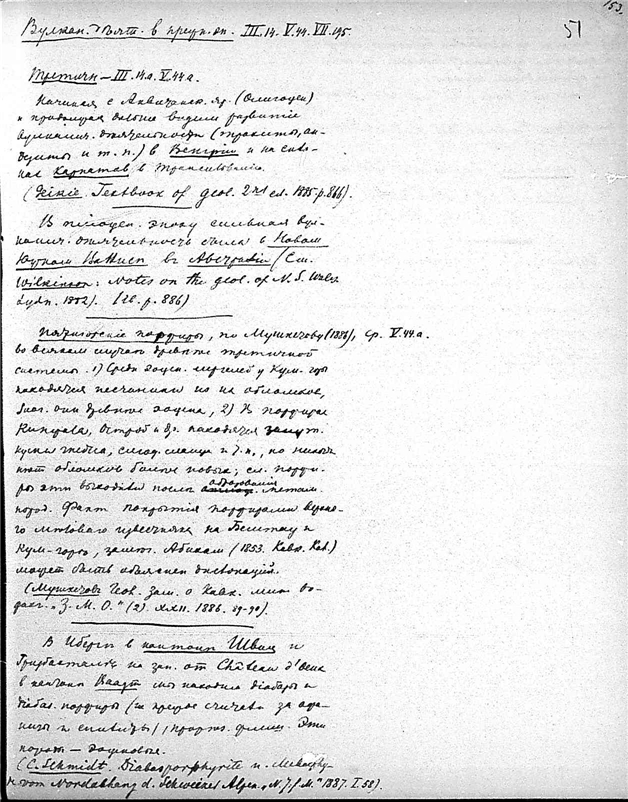 153.
51
Вулкан. дѣят. в преж. эп. III.14. V.44. VII.195
Третичн — III.14a. V.44a.
Начиная с Аквитанск. яр. (Олигоцен)
и продолжая далее видим развитіе
вулканич. дѣятельности (трахиты, ан-
дезиты и т. п.) в Венгріи и на скло-
нах Карпатов в Трансильваніи.
(Geikie. Textbook of geol. 2nd ed. 1885. p. 866).
В пліоцен. эпоху сильная вул-
канич. дѣятельность была в Новом
Южном Валлисе в Австраліи (См.
Wilkinson: Notes on the geol. of N. S. Wales
Sydn. 1882). (ib. p. 886)
Пятигорские порфиры, по Мушкетову (1886), ср. V.44.a.
во всяком случае древнѣе третичной
системы. 1) Среди эоцен. мергелей у Кум-горы
находятся песчаники из их обломков,
они древнѣе эоцена, 2) В порфирах
Кинжала, Острой и др. находятся
куски гнейса, слюд. сланца и т. п., но
обломков более новых; сл. порфи-
ры эти выходили после образованія метам.
пород. Факт покрытія порфирами верхне-
го мѣлового известняка на Бештау и
Кум-горе, замеч. Абихом (1853. Кавк. Кал.)
может быть объяснен дислокаціей.
(Мушкетов Геол. зам. о Кавк. мин. во-
дах. „З. М. О." (2). XXII. 1886. 89-90).
В Иберге в кантоне Швиц и
на зап. от Château d'Oeux
в кантоне Ваадт мы находим діабазы и
діабаз. порфиры (их прежде считали за
и спилиты), флиш. Эти
породы — эоценовые.
(C. Schmidt. Diabasporphyrite u. Melaphy-
re vom Nordabhang d. Schweizer Alpen. „N. J. f. M." 1887. I. 58).